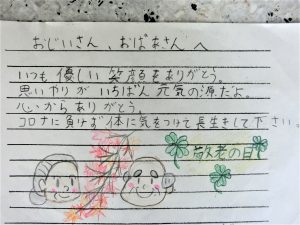 おじいさん、おばあさんへ
いつも優しい笑顔をありがとう。
思いやりがいちばん元気の源だよ。
心からありがとう。
コロナに負けず体に気をつけて長生きして下さい。
敬老の日